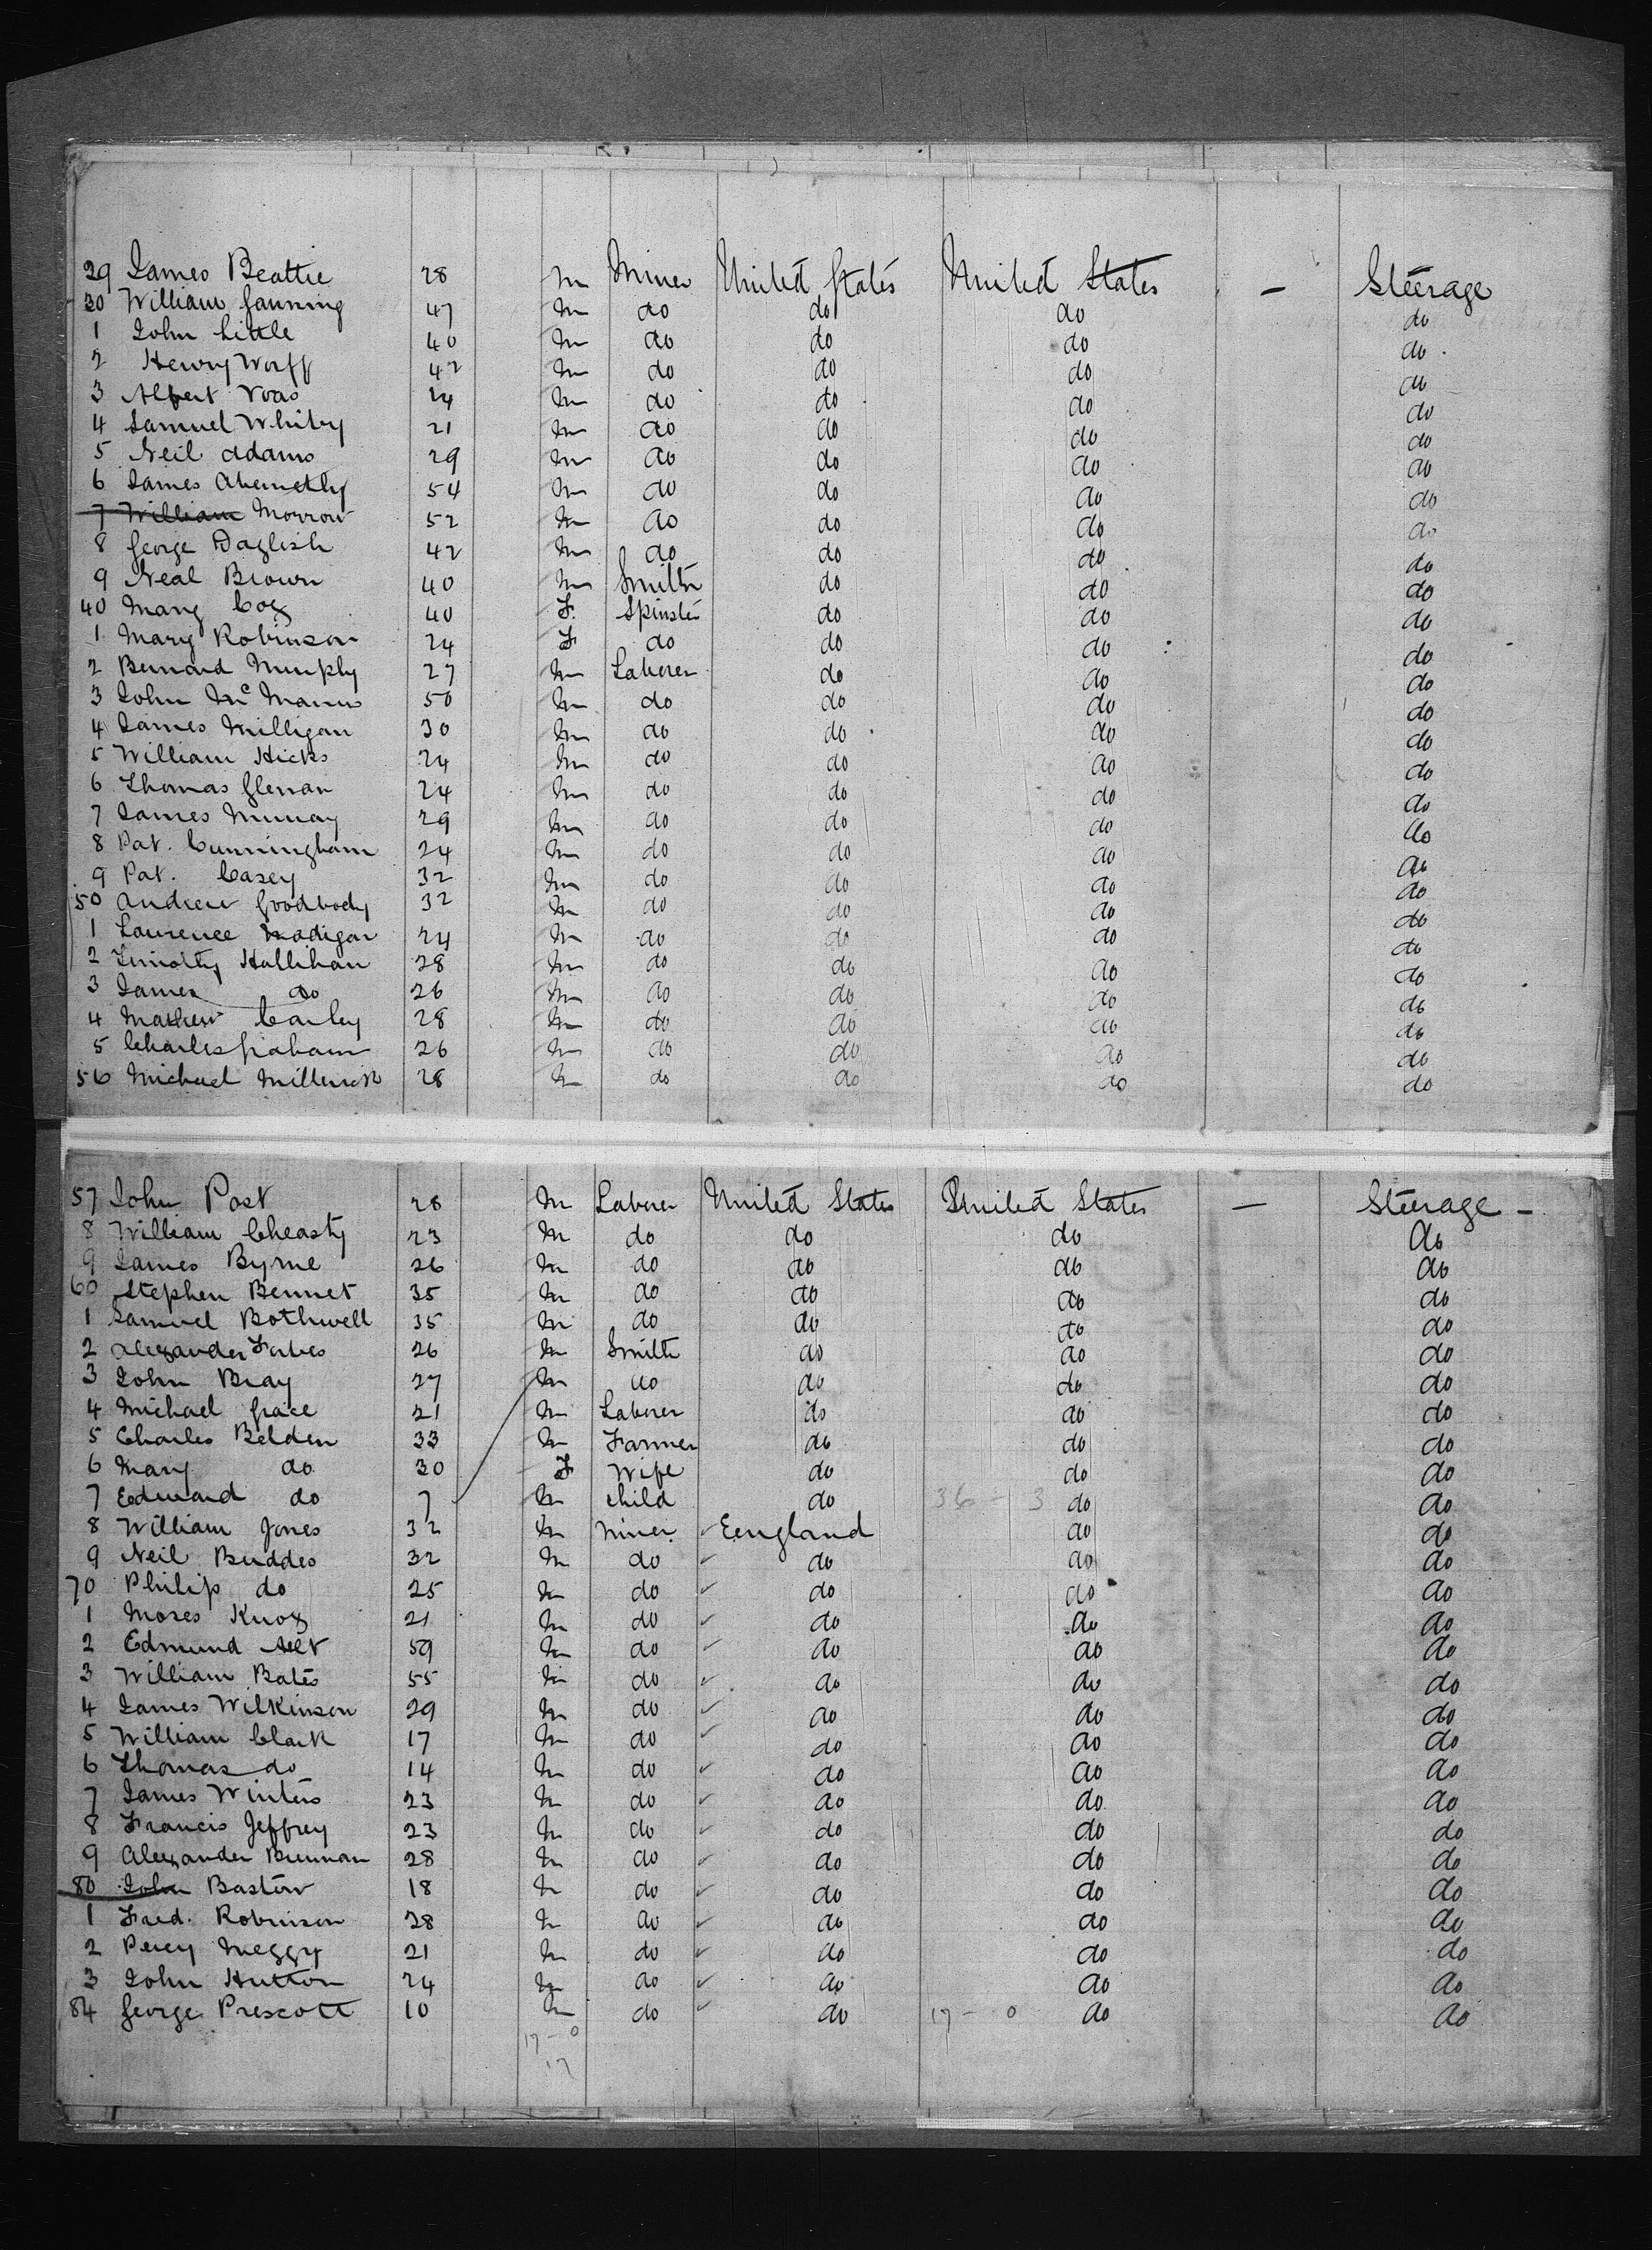 29 James Beattie 28 m Miner United States United States - Steerage
30 William Ganning 47 m do do do do
1 John Little 40 m do do do do
2 Henry Worff 42 m do do do do
3 Albert Voas 24 m do do do do
4 Samuel Whitry 21 m do do do do
5 Neil Adams 29 m do do do do
6 James Abernethy 54 m do do do do
7 William Morrow 52 m do do do do
8 George Daglish 42 m do do do do
9 Neal Brown 40 m Smith do do do
40 Mary Cox 40 F. Spinster do do do
1 Mary Robinson 24 F do do do do
2 Bernard Murphy 27 m Laborer do do do
3 John McManus 50 m do do do do
4 James Milligan 30 m do do do do
5 William Hicks 24 m do do do do
6 Thomas Glenan 24 m do do do do
7 James Murray 29 m do do do do
8 Pat. Cunningham 24 m do do do do
9 Pat. Casey 32 m do do do do
50 Andrew Goodbody 32 m do do do do
1 Laurence Madigan 24 m do do do do
2 Timothy Hallihan 28 m do do do do
3 James do 26 m do do do do
4 Mathew Carley 28 m do do do do
5 Charles Graham 26 m do do do do
56 Michael Millerick 28 m do do do do
57 John Post 28 m Laborer United States United States - Steerage -
8 William Cheasty 23 m do do do do
9 James Byrne 26 m do do do do
60 Stephen Bennet 35 m do do do do
1 Samuel Bothwell 35 m do do do do
2 Alexander Forbes 26 m Smith do do do
3 John Bray 27 m do do do do
4 Michael Grace 21 m Laborer do do do
5 Charles Belden 33 m Farmer do do do
6 Mary do 30 F Wife do do do
7 Edward do 7 m child do 36 - 3 do do
8 William Jones 32 m Miner ✓ England do do
9 Neil Buddes 32 m do ✓ do do do
70 Philip do 25 m do ✓ do do do
1 Moses Knox 21 m do ✓ do do do
2 Edmund Alt 59 m do ✓ do do do
3 William Bates 55 m do ✓ do do do
4 James Wilkinson 29 m do ✓ do do do
5 William Clark 17 m do ✓ do do do
6 Thomas do 14 m do ✓ do do do
7 James Winters 23 m do ✓ do do do
8 Francis Jeffrey 23 m do ✓ do do do
9 Alexander Brennan 28 m do ✓ do do do
80 John Bastow 18 m do ✓ do do do
1 Fred. Robinson 28 m do ✓ do do do
2 Percy Meggy 21 m do ✓ do do do
3 John Hutton 24 m do ✓ do do do
84 George Prescott 10 m do ✓ do 17 - 0 do do
17 - 0
17